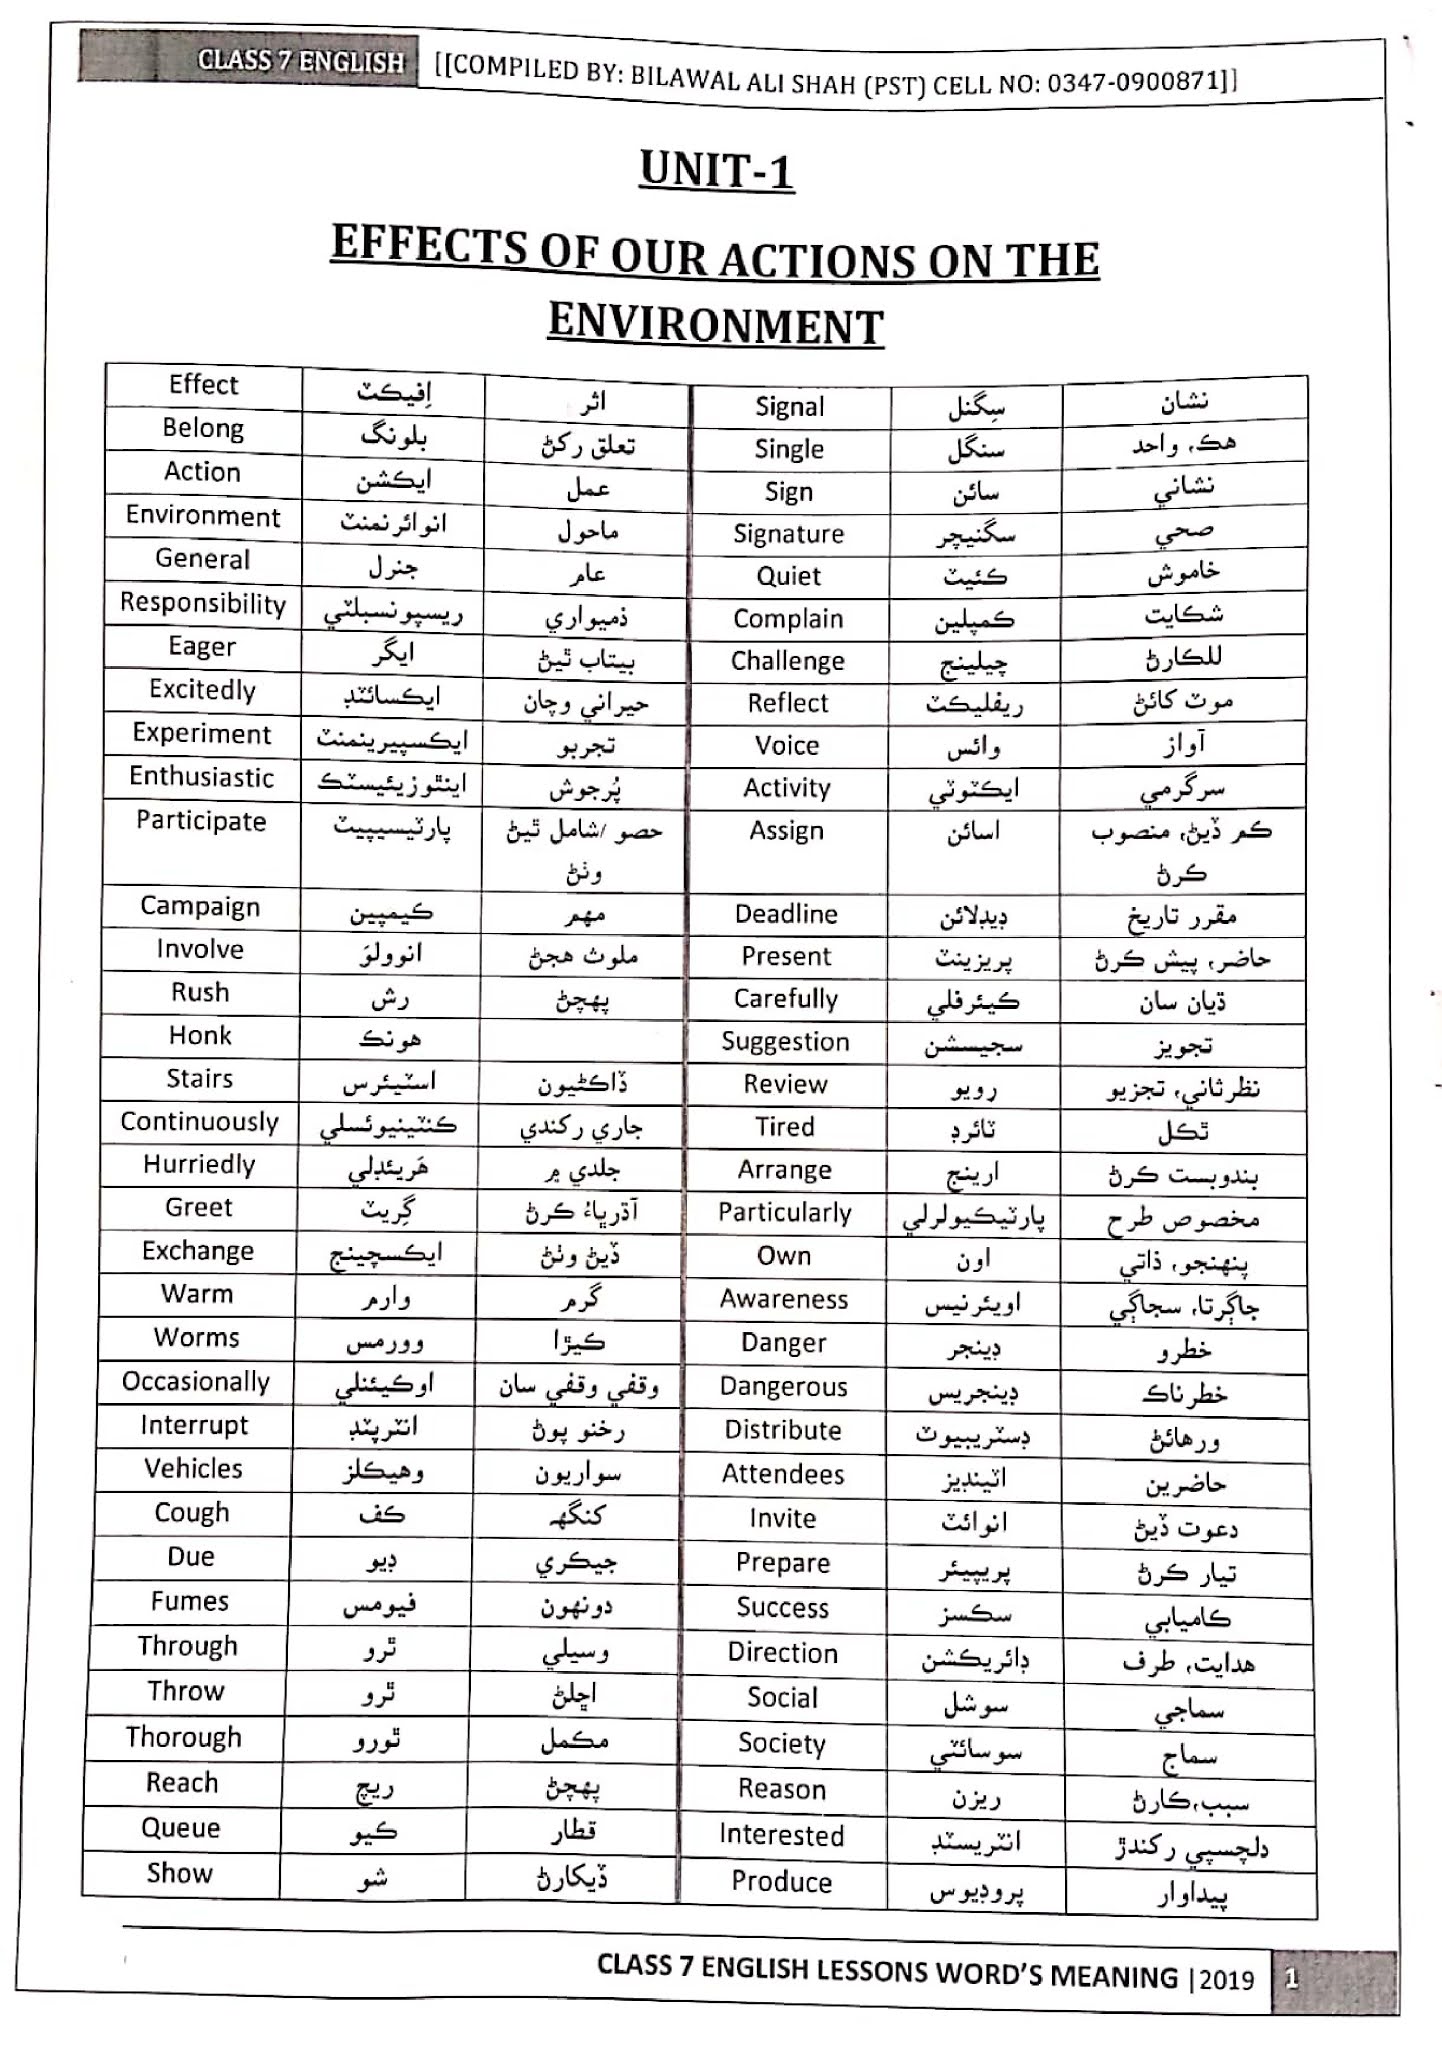 CLASS 7 ENGLISH [[COMPILED BY: BILAWAL ALI SHAH (PST) CELL NO: 0347-0900871]]
UNIT-1
EFFECTS OF OUR ACTIONS ON THE
ENVIRONMENT
Effect اِفيڪٽ اثر Signal سِگنل نشان
Belong بلونگ تعلق رکڻ Single سنگل هڪ، واحد
Action ايڪشن عمل Sign سائن نشاني
Environment انوائرنمنٽ ماحول Signature سگنيچر صحي
General جنرل عام Quiet ڪئيٽ خاموش
Responsibility ريسپونسبلٽي ذميواري Complain ڪمپلين شڪايت
Eager ايگر بيتاب ٿيڻ Challenge چيلينج للڪارڻ
Excitedly ايڪسائٽڊ حيراني وچان Reflect ريفليڪٽ موٽ کائڻ
Experiment ايڪسپيرينمنٽ تجربو Voice وائس آواز
Enthusiastic اينٿوزيئيسٽڪ پُرجوش Activity ايڪٽوٽي سرگرمي
Participate پارٽيسيپيٽ حصو /شامل ٿيڻ Assign اسائن ڪم ڏيڻ، منصوب
وٺڻ ڪرڻ
Campaign ڪيمپين مهم Deadline ڊيڊلائن مقرر تاريخ
Involve انوولوَ ملوث هجڻ Present پريزينٽ حاضر، پيش ڪرڻ
Rush رش پهچڻ Carefully ڪيئرفلي ڌيان سان
Honk هونڪ Suggestion سجيسشن تجويز
Stairs اسٽيئرس ڏاڪڻيون Review رويو نظرثاني، تجزيو
Continuously ڪنٽينيوئسلي جاري رکندي Tired ٽائرڊ ٿڪل
Hurriedly هَريئڊلي جلدي ۾ Arrange ارينج بندوبست ڪرڻ
Greet گِريٽ آڌرڀاءُ ڪرڻ Particularly پارٽيڪيولرلي مخصوص طرح
Exchange ايڪسچينج ڏيڻ وٺڻ Own اون پنهنجو، ذاتي
Warm وارم گرم Awareness اويئرنيس جاڳرتا، سجاڳي
Worms وورمس ڪيڙا Danger ڊينجر خطرو
Occasionally اوڪيئنلي وقفي وقفي سان Dangerous ڊينجريس خطرناڪ
Interrupt انٽرپٽڊ رخنو پوڻ Distribute ڊسٽريبيوٽ ورهائڻ
Vehicles وهيڪلز سواريون Attendees اٽينڊيز حاضرين
Cough ڪف کنگهہ Invite انوائٽ دعوت ڏيڻ
Due ڊيو جيڪري Prepare پريپيئر تيار ڪرڻ
Fumes فيومس دونهون Success سڪسز ڪاميابي
Through ٿرو وسيلي Direction ڊائريڪشن هدايت، طرف
Throw ٿرو اڇلڻ Social سوشل سماجي
Thorough ٿورو مڪمل Society سوسائٽي سماج
Reach ريچ پهچڻ Reason ريزن سبب،ڪارڻ
Queue ڪيو قطار Interested انٽريسٽڊ دلچسپي رکندڙ
Show شو ڏيکارڻ Produce پروڊيوس پيداوار
CLASS 7 ENGLISH LESSONS WORD'S MEANING |2019 1